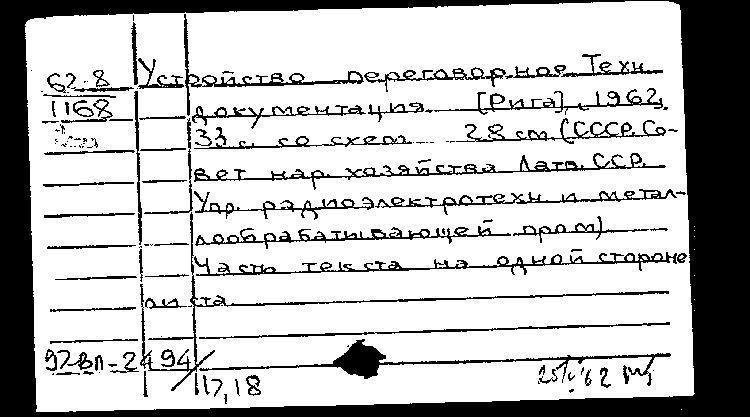 62-8 Устройство переговорное Техн.
1168 документация. [Рига], 1962.
33 с. со схем. 28 см. (СССР. Со-
вет нар. хозяйства Латв. ССР.
Упр. радиоэлектротехн и метал-
лообрабатывающей пром)
Часть текста на одной стороне
листа
92-ВЛ-2494/17,18